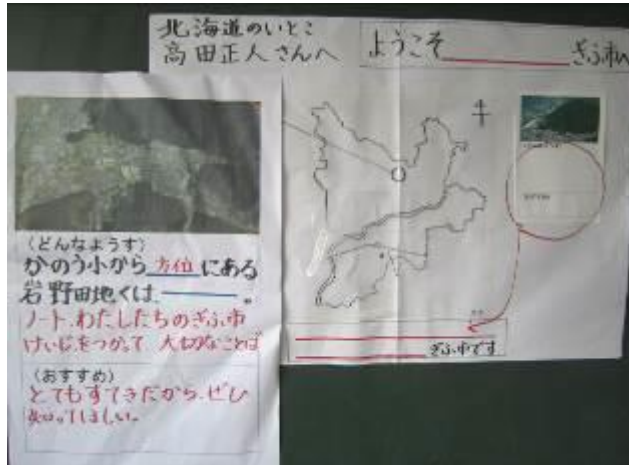 北海道のいとこ
高田正人さんへ
ようこそ ぎふ市へ
(どんなようす)
かのう小から 方位 にある
岩野田地くは、 。
ノート、わたしたちのぎふ市
けいじをつかって、大切なことば
(おすすめ)
とてもすてきだから、ぜひ
知ってほしい。
ぎふ市です